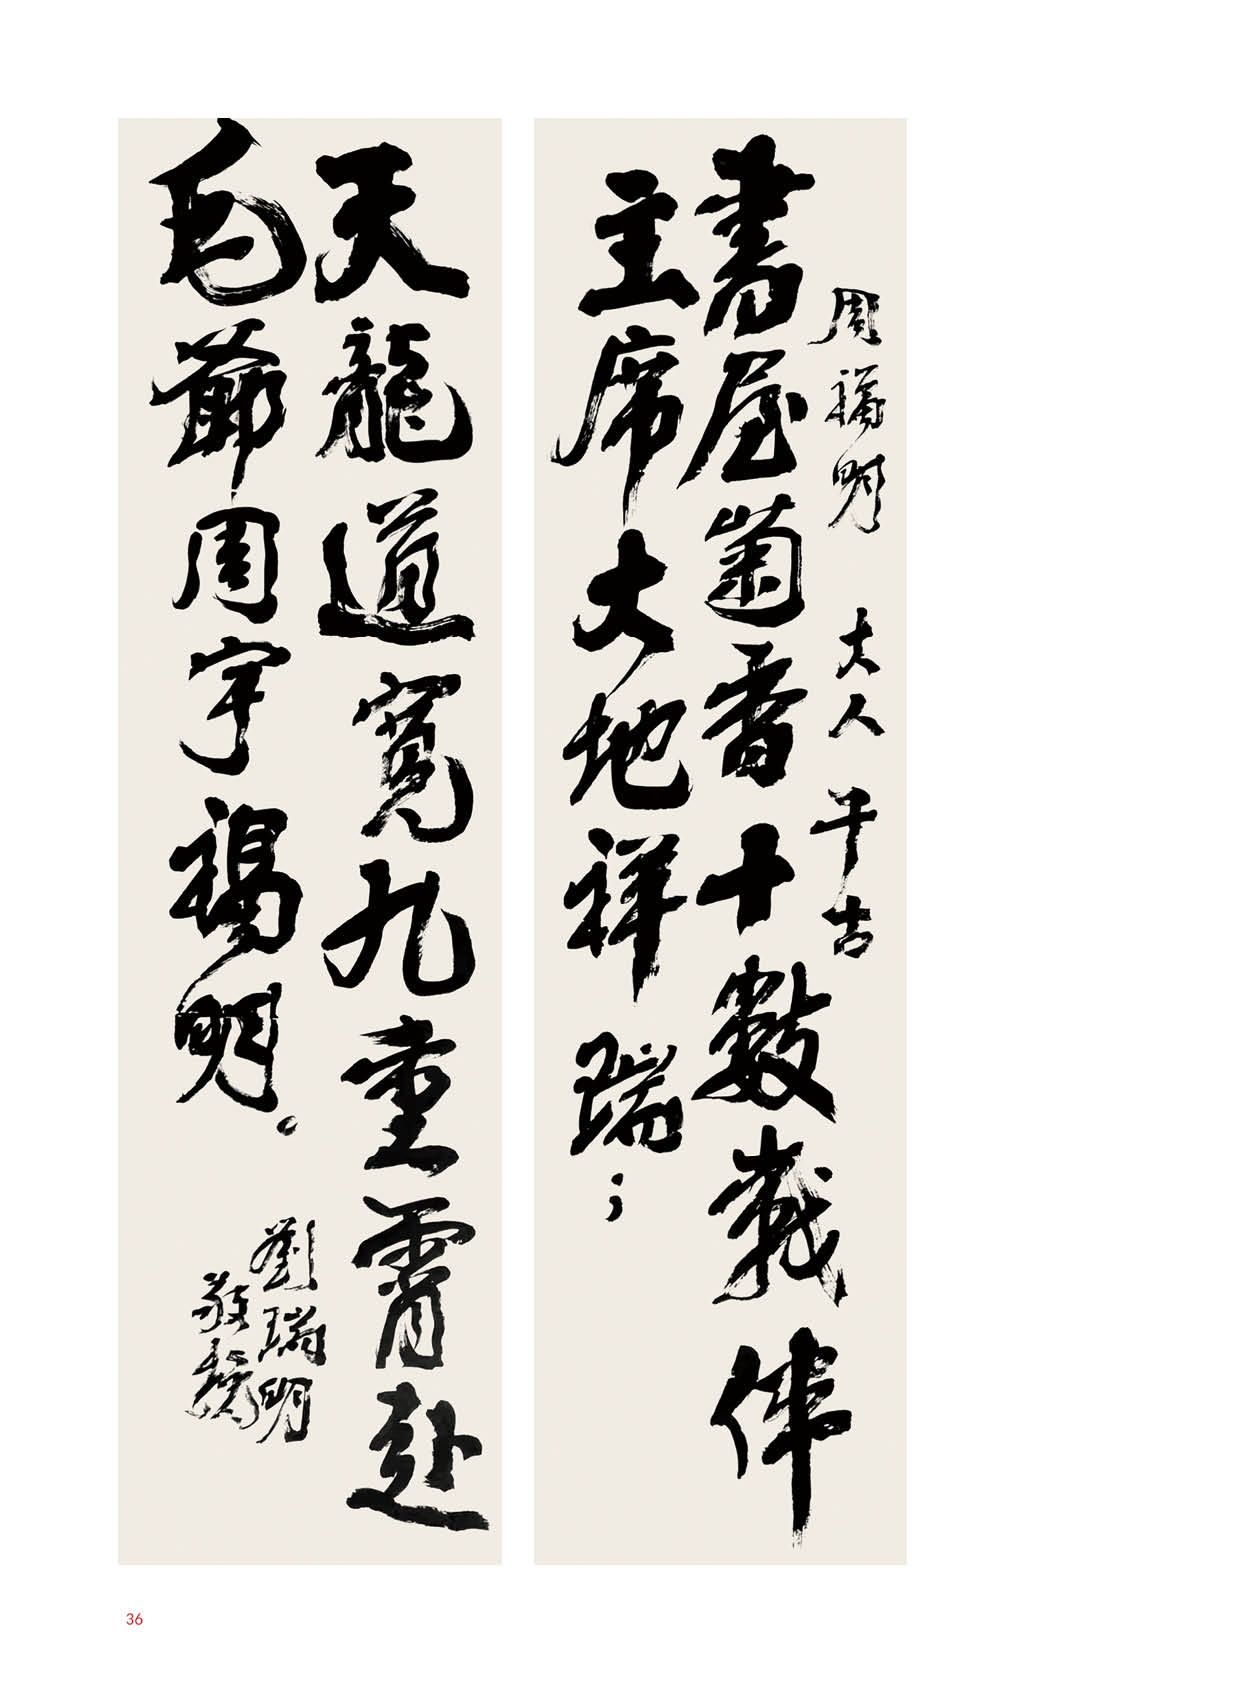 周福明 大人 千古
書屋菊香十數載伴
主席大地祥瑞；
天龍道寬九重霄赴
毛爺周宇福明。
劉瑞明
敬輓
36